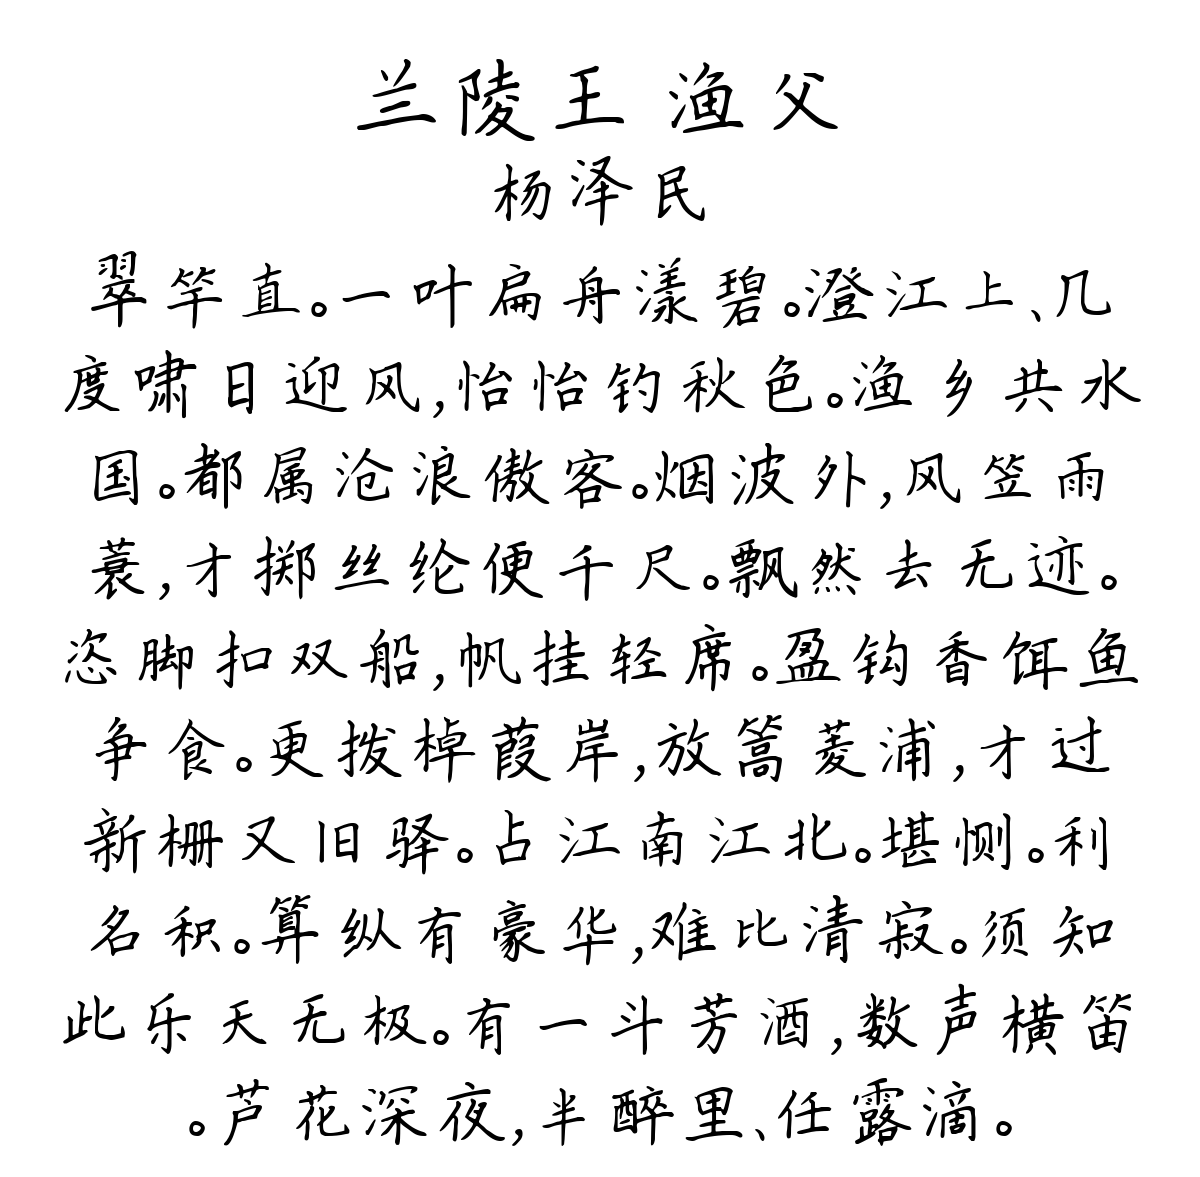 兰陵王 渔父
杨泽民
翠竿直。一叶扁舟漾碧。澄江上、几
度啸日迎风,怡怡钓秋色。渔乡共水
国。都属沧浪傲客。烟波外,风笠雨
蓑,才掷丝纶便千尺。飘然去无迹。
恣脚扣双船,帆挂轻席。盈钩香饵鱼
争食。更拨棹葭岸,放篙菱浦,才过
新栅又旧驿。占江南江北。堪恻。利
名积。算纵有豪华,难比清寂。须知
此乐天无极。有一斗芳酒,数声横笛
。芦花深夜,半醉里、任露滴。